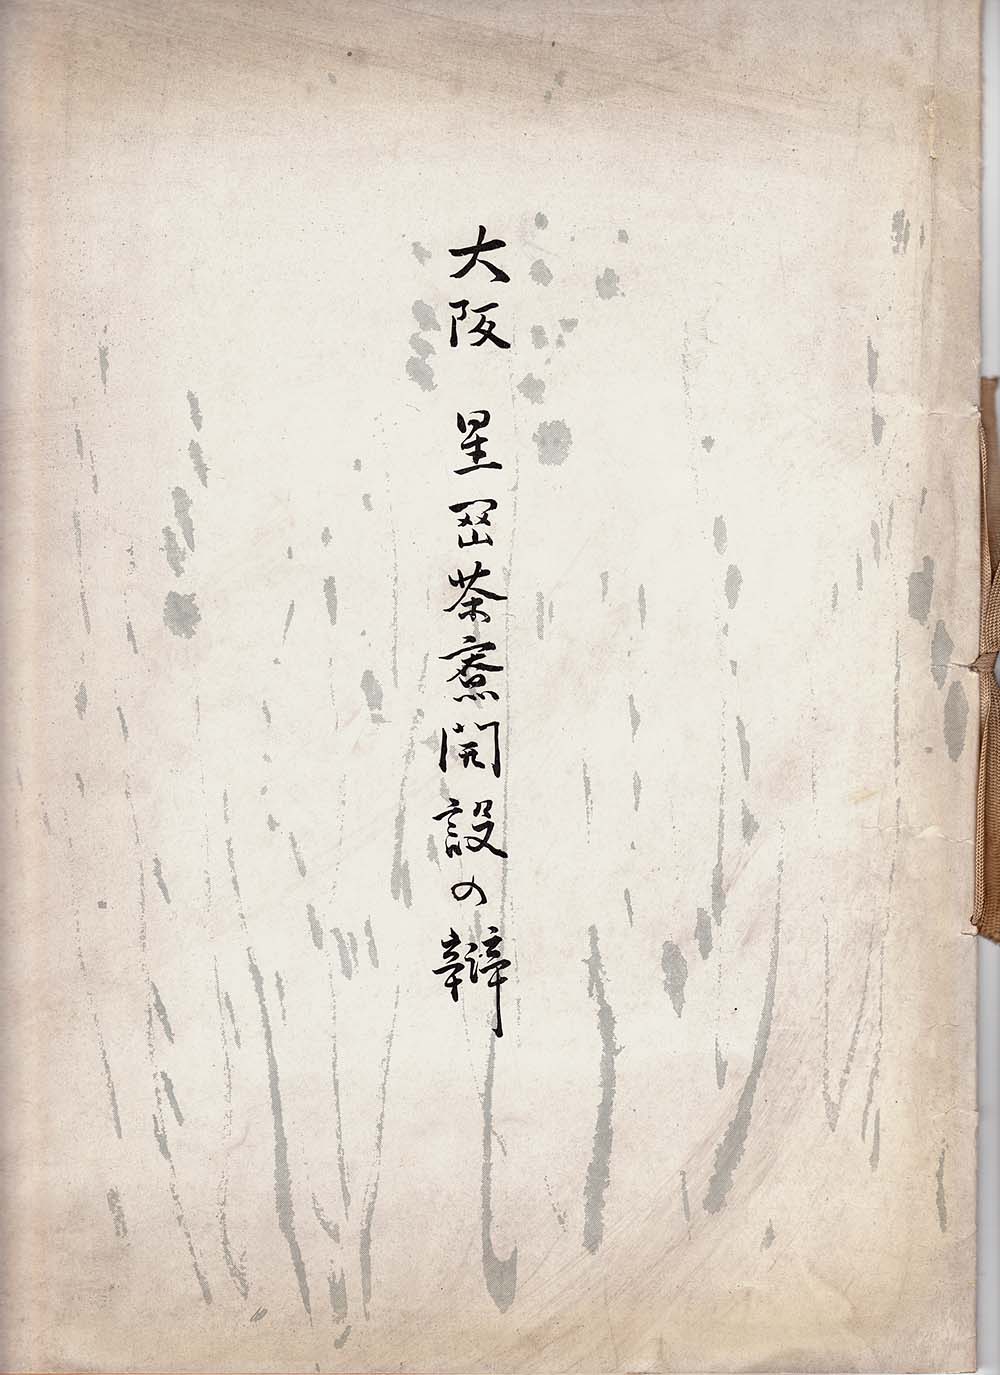 大阪 星罡茶寮開設の辯